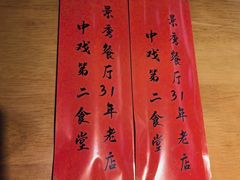 景秀餐厅31年老店
中戏第二食堂
景秀餐厅31年老店
中戏第二食堂